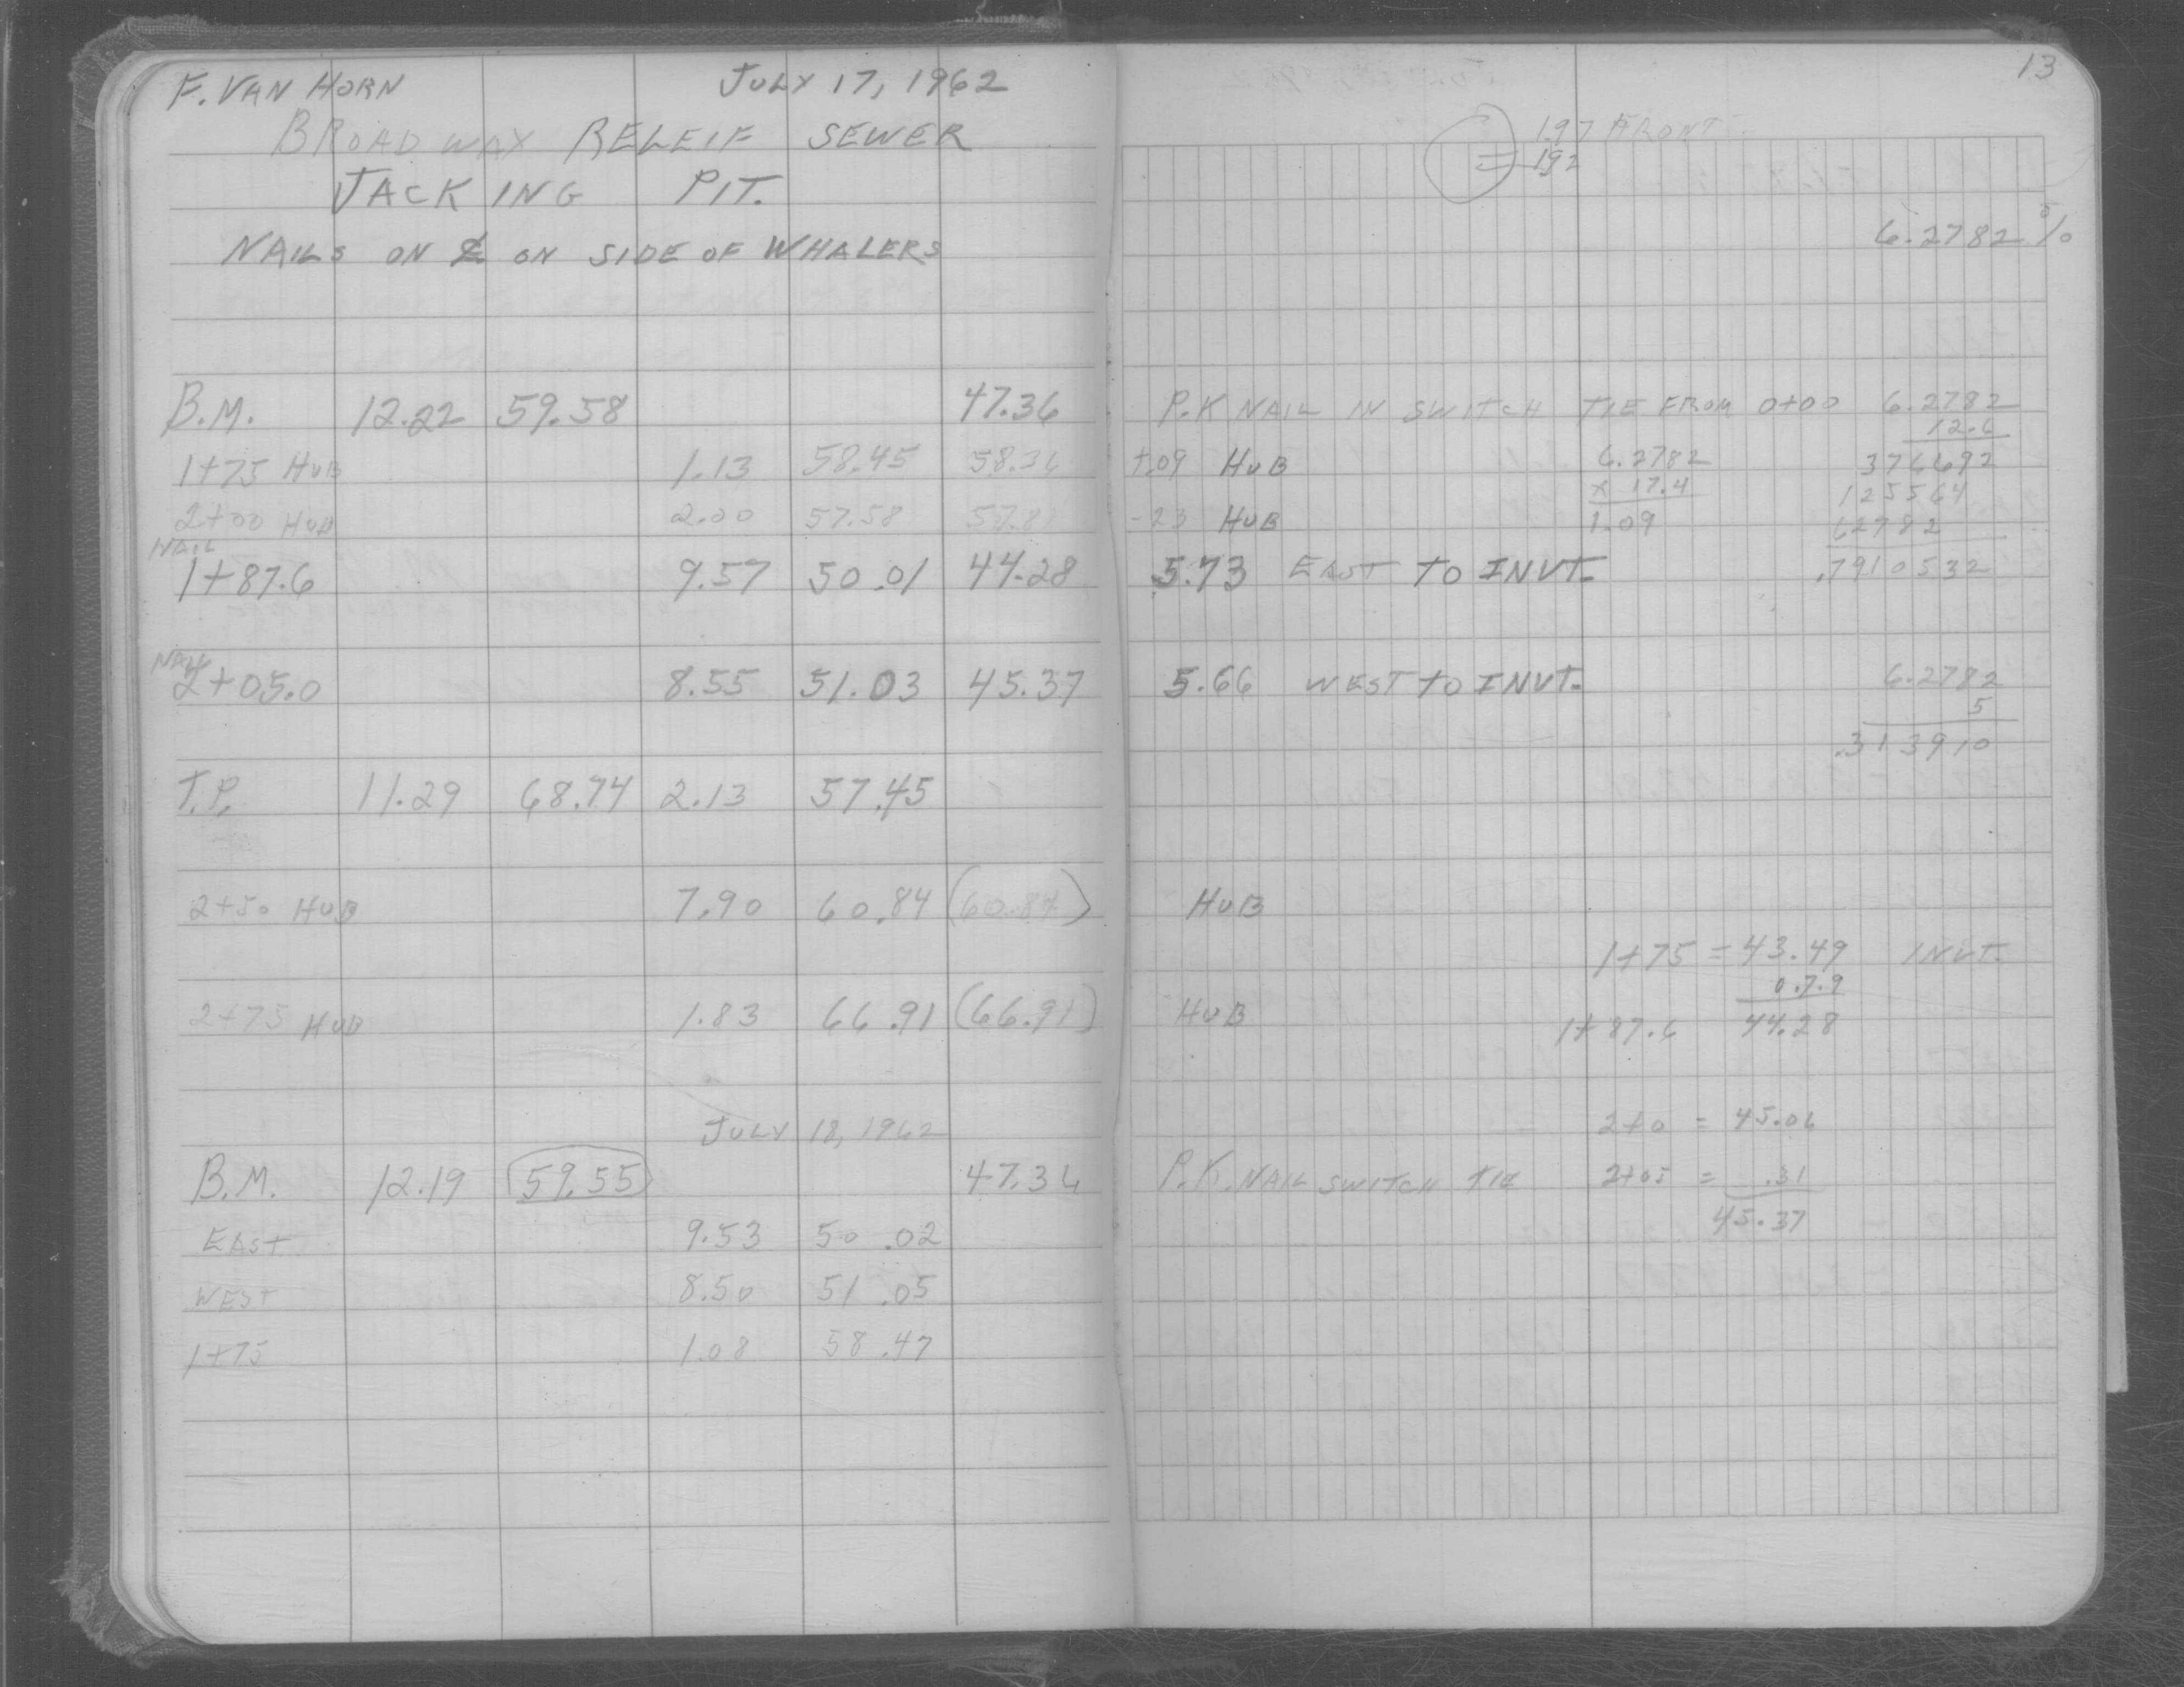 F. VAN HORN JULY 17, 1962
BROADWAY RELEIF SEWER
JACKING PIT.
NAILS ON ℄ ON SIDE OF WHALERS
B.M. 12.22 59.58 47.36
1+75 HUB 1.13 58.45 58.36
2+00 HUB 2.00 57.58 57.81
NAIL
1+87.6 9.57 50.01 44.28
NAIL
2+05.0 8.55 51.03 45.37
T.P. 11.29 68.74 2.13 57.45
2+50 HUB 7.90 60.84 (60.84)
2+75 HUB 1.83 66.91 (66.91)
JULY 18, 1962
B.M. 12.19 59.55 47.36
EAST 9.53 50.02
WEST 8.50 51.05
1+75 1.08 58.47
13
197 FRONT
= 192
6.2782 %
P.K NAIL IN SWITCH TIE FROM 0+00 6.2782
12.6
+.09 HUB 6.2782 376692
x 17.4 125564
-23 HUB 1.09 62782
5.73 EAST TO INVT. .7910532
5.66 WEST TO INVT. 6.2782
5
.313910
HUB
1+75 = 43.49 INVT.
0.79
HUB 1+87.6 44.28
2+0 = 45.06
P.K. NAIL SWITCH TIE 2+05 = .31
45.37